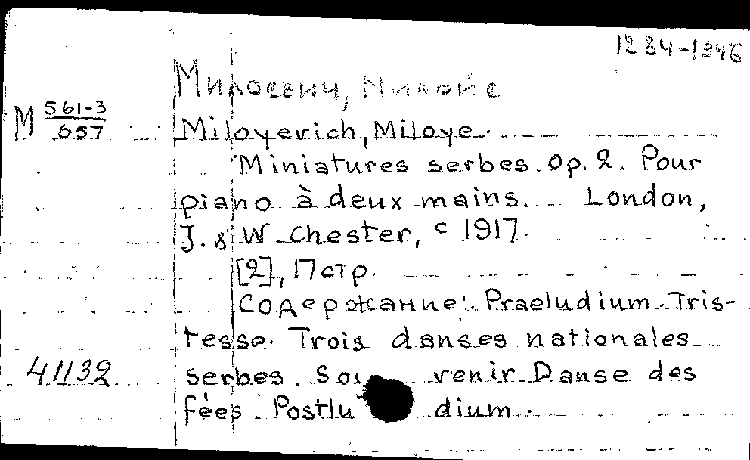 1884-1946
Милоевич, Милойе
М 561-3
657
Miloyevich, Miloye
Miniatures serbes. Op. 2. Pour
piano à deux mains. London,
J. & W Chester, c 1917.
[2], 17 стр.
Содержание: Praeludium. Tris-
tesse. Trois danses nationales
serbes. Souvenir. Danse des
fées. Postludium.
41132